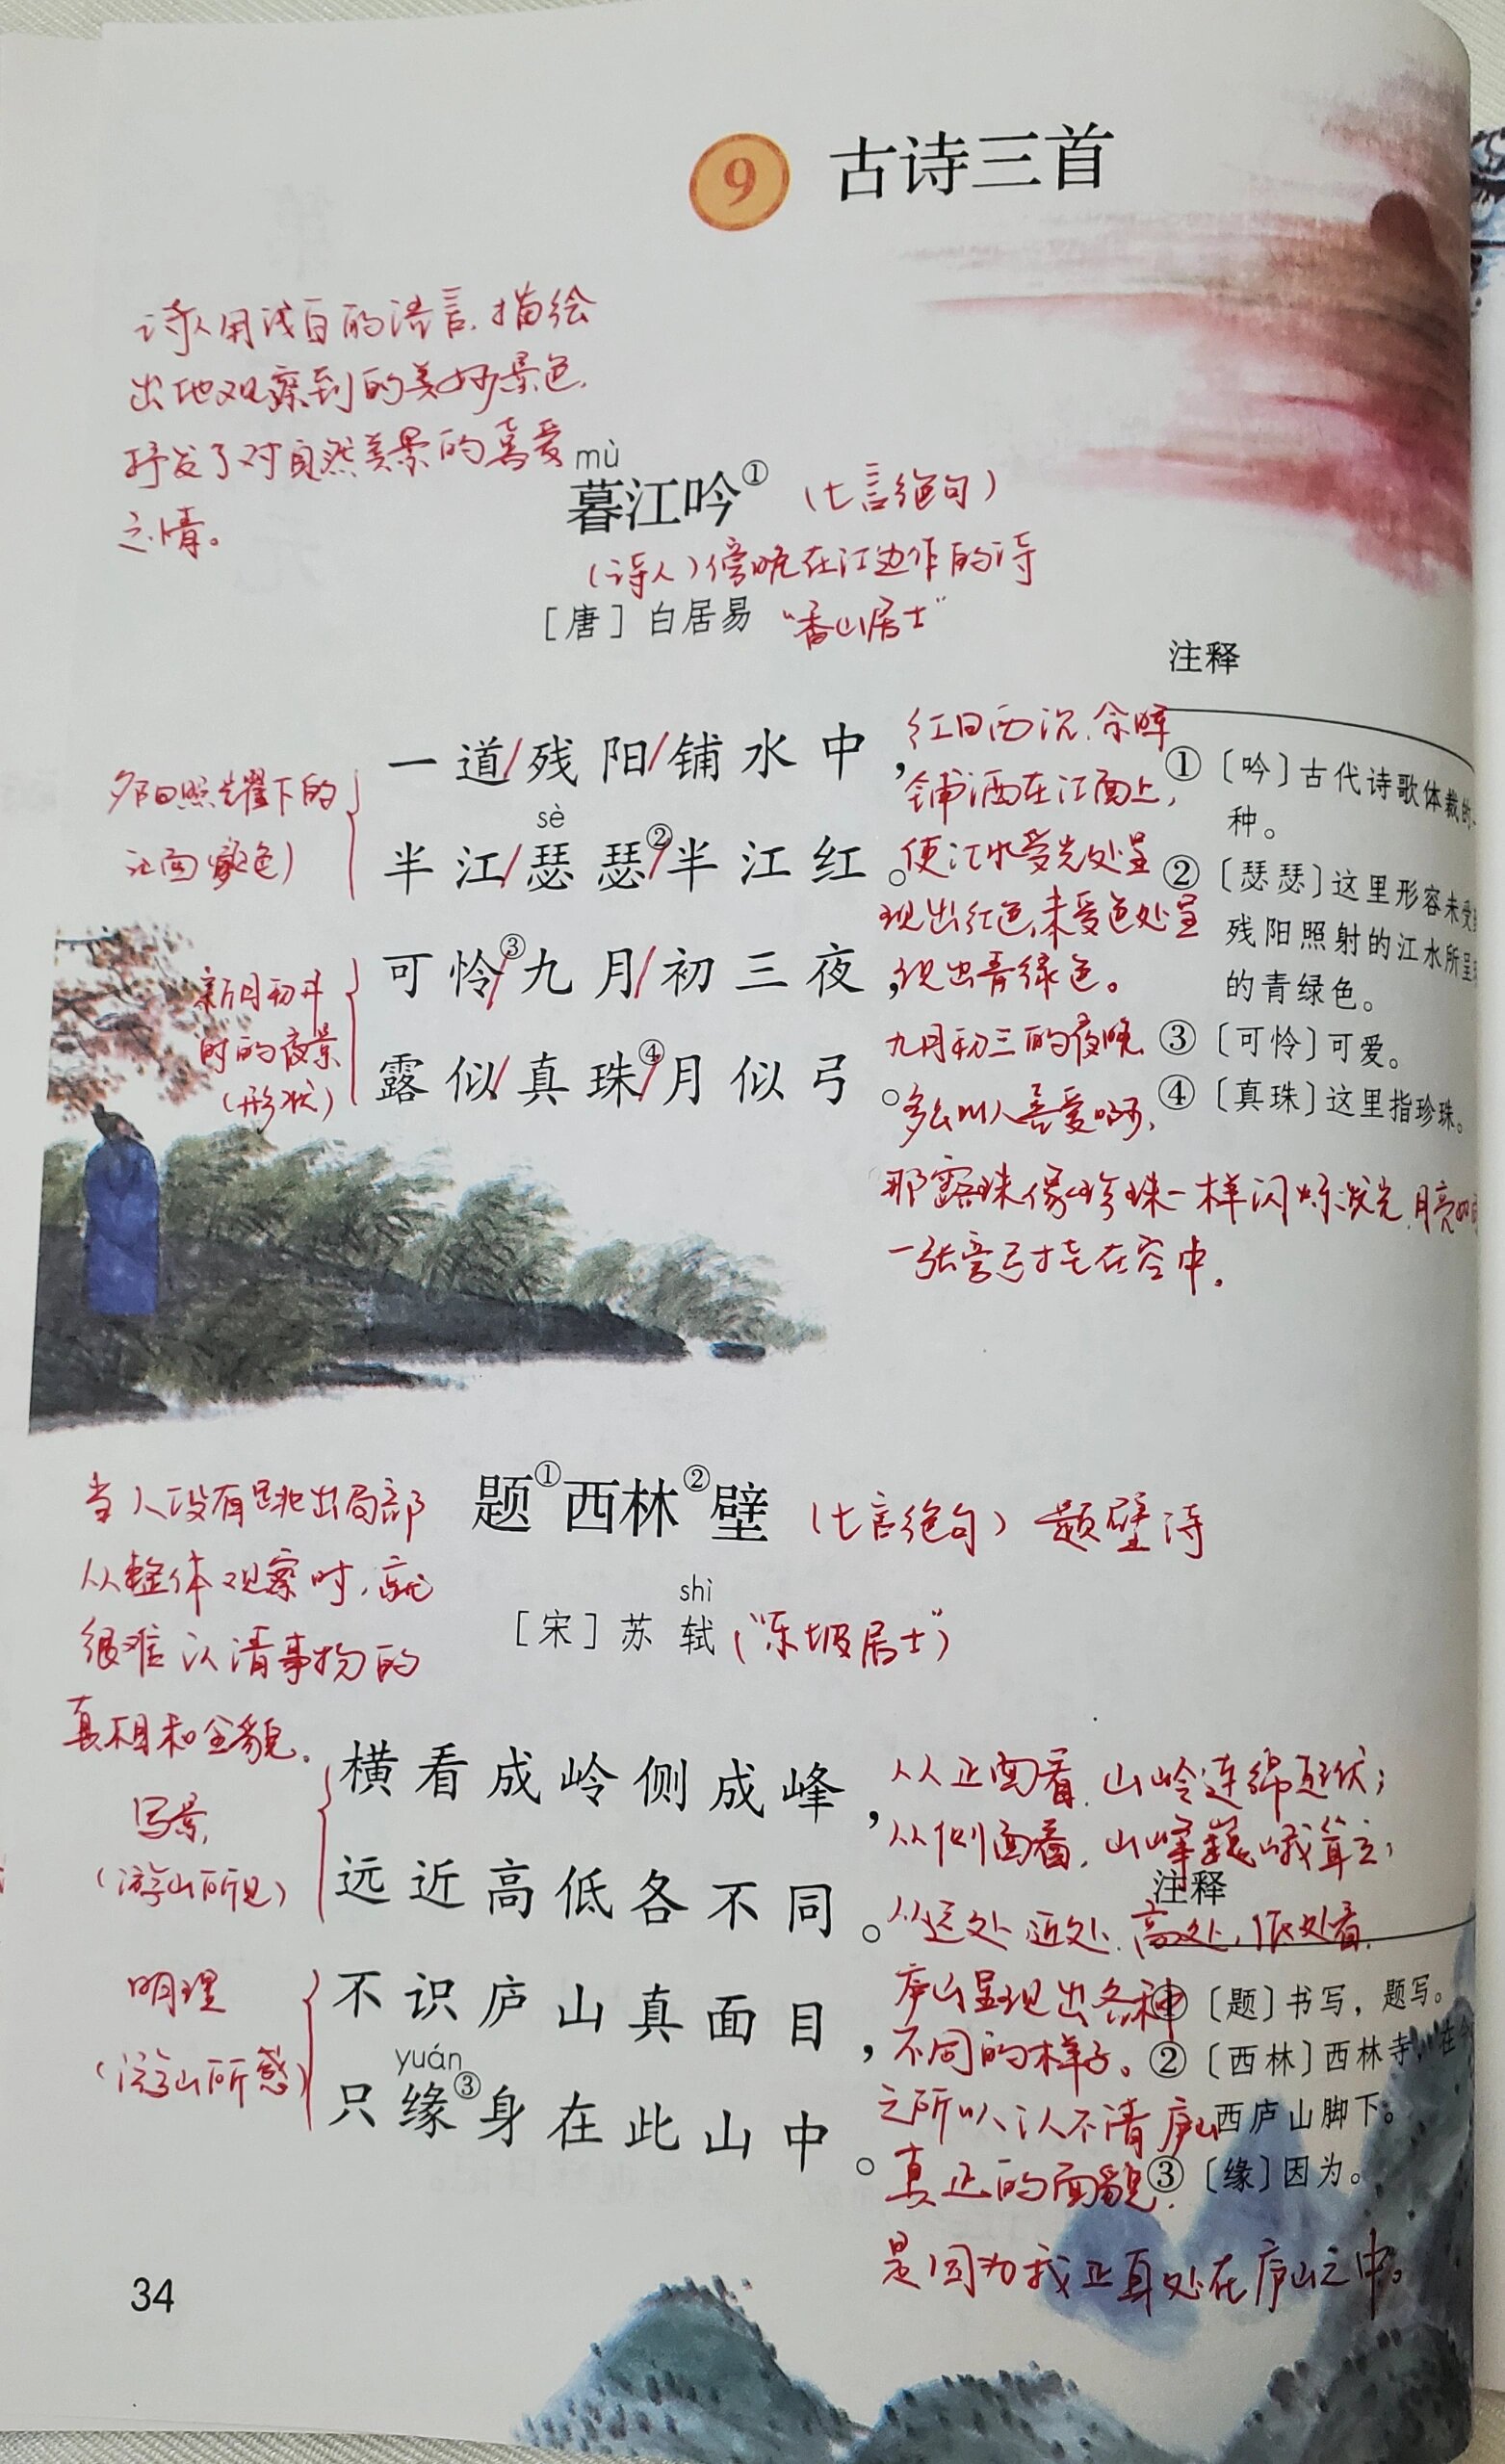 9 古诗三首
诗人用浅白的语言,描绘
出他观察到的美好景色,
抒发了对自然美景的喜爱
之情。
mù
暮江吟① (七言绝句)
(诗人)傍晚在江边作的诗
[唐] 白居易 “香山居士”
一道/残阳/铺水中,
sè
半江/瑟瑟②/半江红。
可怜③/九月/初三夜,
露似/真珠④/月似弓。
夕阳照耀下的
江面(颜色)
新月初升
时的夜景
(形状)
红日西沉,余晖
铺洒在江面上,
使江水受光处呈
现出红色,未受色处呈
现出青绿色。
九月初三的夜晚
多么叫人喜爱啊,
那露珠像珍珠一样闪烁发光,月亮如同
一张弯弓挂在空中。
注释
①〔吟〕古代诗歌体裁的一
种。
②〔瑟瑟〕这里形容未受到
残阳照射的江水所呈现
的青绿色。
③〔可怜〕可爱。
④〔真珠〕这里指珍珠。
当人没有跳出局部
从整体观察时,就
很难认清事物的
真相和全貌。
题①西林②壁 (七言绝句) 题壁诗
shì
[宋] 苏轼 (“东坡居士”)
横看成岭侧成峰,
远近高低各不同。
不识庐山真面目,
yuán
只缘③身在此山中。
写景,
(游山所见)
明理
(游山所感)
从正面看,山岭连绵起伏;
从侧面看,山峰巍峨耸立;
从远处、近处、高处、低处看,
庐山呈现出各种
不同的样子。
之所以认不清庐山
真正的面貌,
是因为我正身处在庐山之中。
注释
①〔题〕书写,题写。
②〔西林〕西林寺,在今
西庐山脚下。
③〔缘〕因为。
34